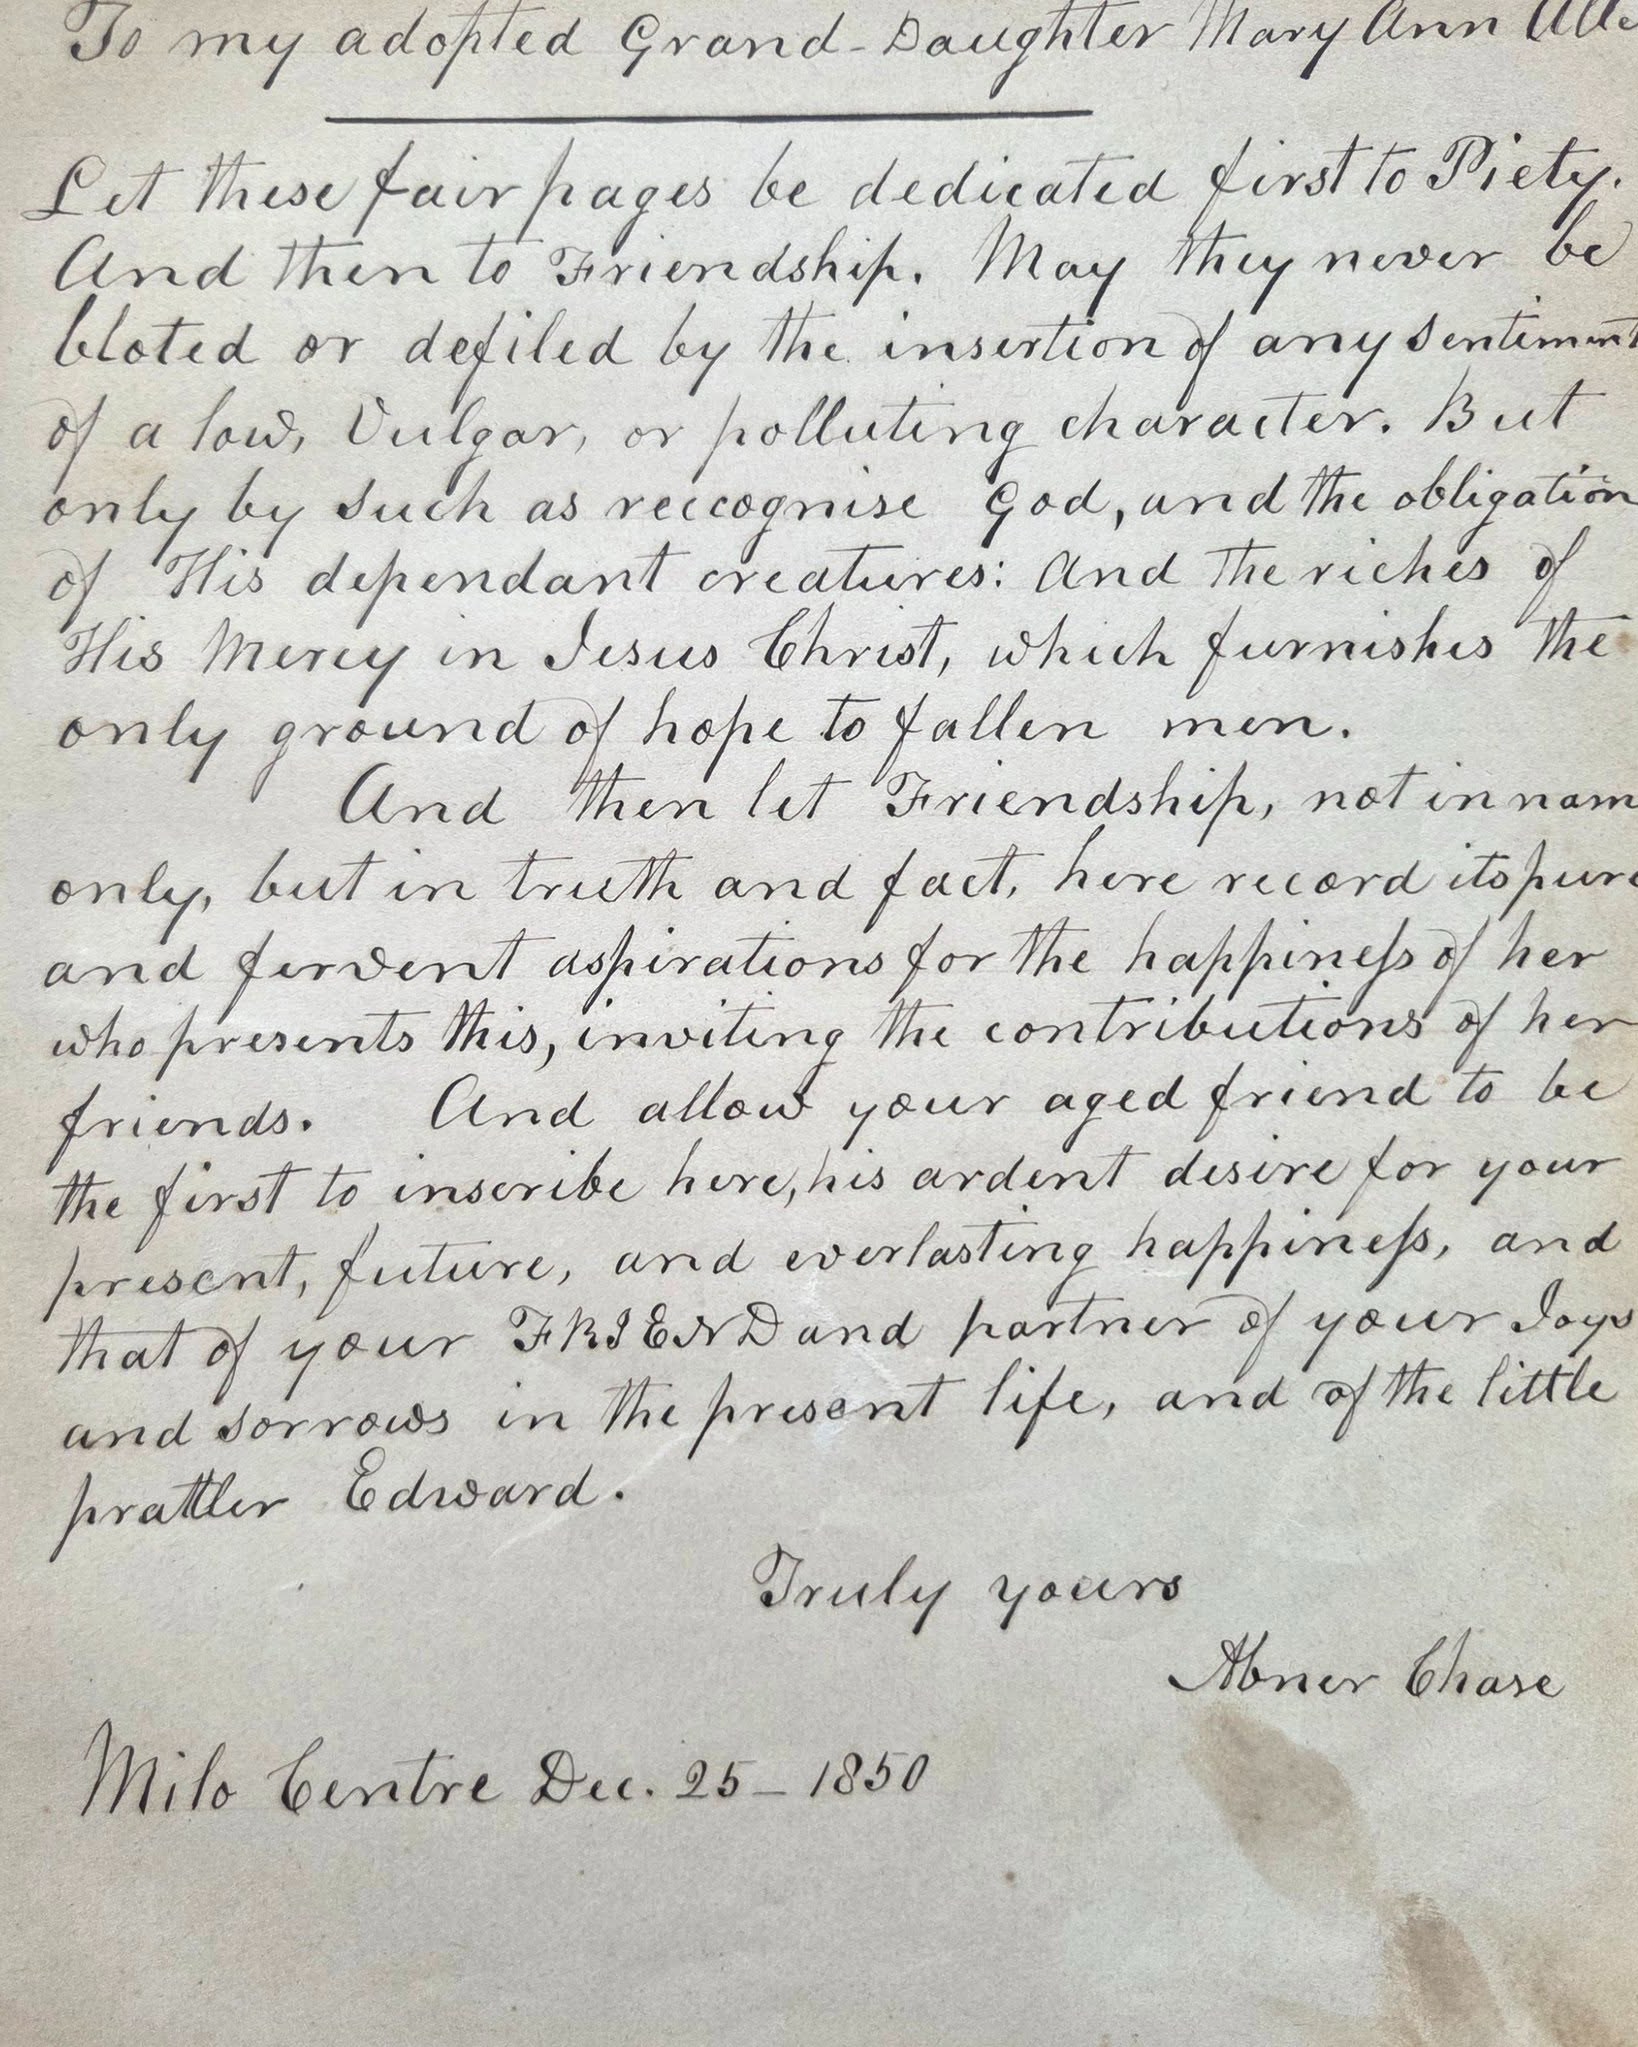 To my adopted Grand-Daughter Mary Ann
Let these fair pages be dedicated first to Piety.
And then to Friendship. May they never be
bloted or defiled by the insertion of any sentiment
of a low, Vulgar, or polluting character. But
only by such as reccognise God, and the obligation
of His dependant creatures: And the riches of
His Mercy in Jesus Christ, which furnishes the
only ground of hope to fallen men.
And then let Friendship, not in nam
only, but in truth and fact, here record its pure
and fervent aspirations for the happineſs of her
who presents this, inviting the contributions of her
friends. And allow your aged friend to be
the first to inscribe here, his ardent desire for your
present, future, and everlasting happineſs, and
that of your FRIEND and partner of your Joys
and sorrows in the present life, and of the little
prattler Edward.
Truly yours
Abner Chase
Milo Centre Dec. 25 - 1850